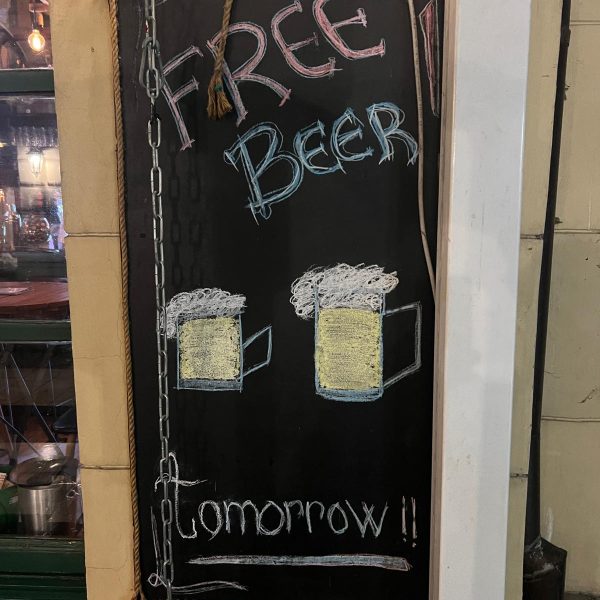 FREE
BEER
tomorrow!!